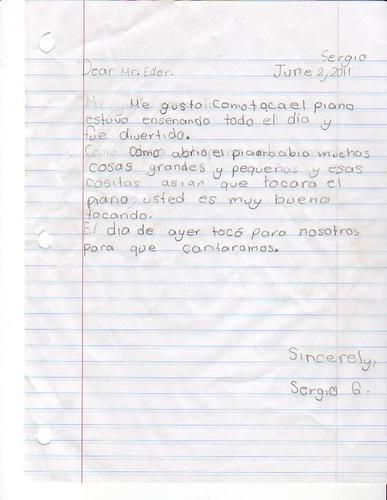 Sergio
Dear Mr. Eder. June 2, 2011
Me gusto como toca el piano
estuvo ensenando todo el día y
fue divertido.
Como como abrio el piano abia muchas
cosas grandes y pequeñas y esas
cositas asian que tocara el
piano usted es muy bueno
tocando.
El dia de ayer tocó para nosotros
para que cantaramos.
Sincerely,
Sergio G.